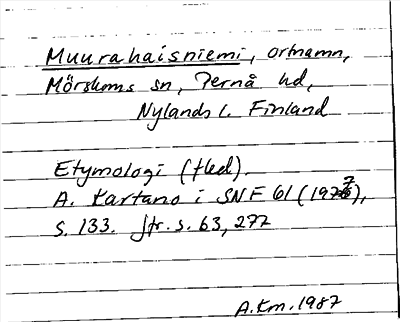 Muurahaisniemi, ortnamn,
Mörskoms sn, Pernå hd,
Nylands l. Finland
Etymologi (fled).
A. Kartano i SNF 61 (1977),
s. 133. Jfr. s. 63, 277
A.Km. 1987